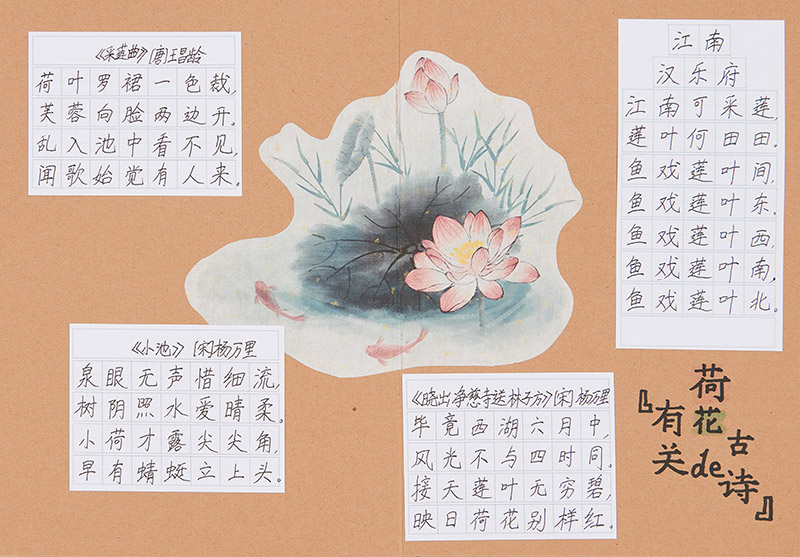 《采莲曲》[唐]王昌龄
荷叶罗裙一色裁,
芙蓉向脸两边开。
乱入池中看不见,
闻歌始觉有人来。
《小池》[宋]杨万里
泉眼无声惜细流,
树阴照水爱晴柔。
小荷才露尖尖角,
早有蜻蜓立上头。
《晓出净慈寺送林子方》[宋]杨万里
毕竟西湖六月中,
风光不与四时同。
接天莲叶无穷碧,
映日荷花别样红。
江南
汉乐府
江南可采莲,
莲叶何田田。
鱼戏莲叶间,
鱼戏莲叶东。
鱼戏莲叶西,
鱼戏莲叶南,
鱼戏莲叶北。
『有关
荷花
de
古诗』